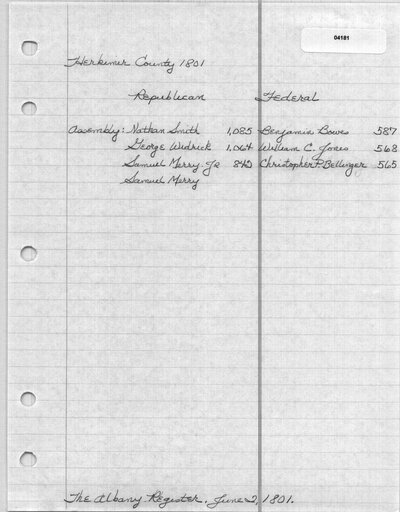 04181
Herkimer County 1801
Republican Federal
Assembly: Nathan Smith 1,085 Benjamin Bowes 587
George Widrick 1,064 William C. Jones 568
Samuel Merry Jr 842 Christopher P. Bellinger 565
Samuel Merry
The Albany Register, June 2, 1801.